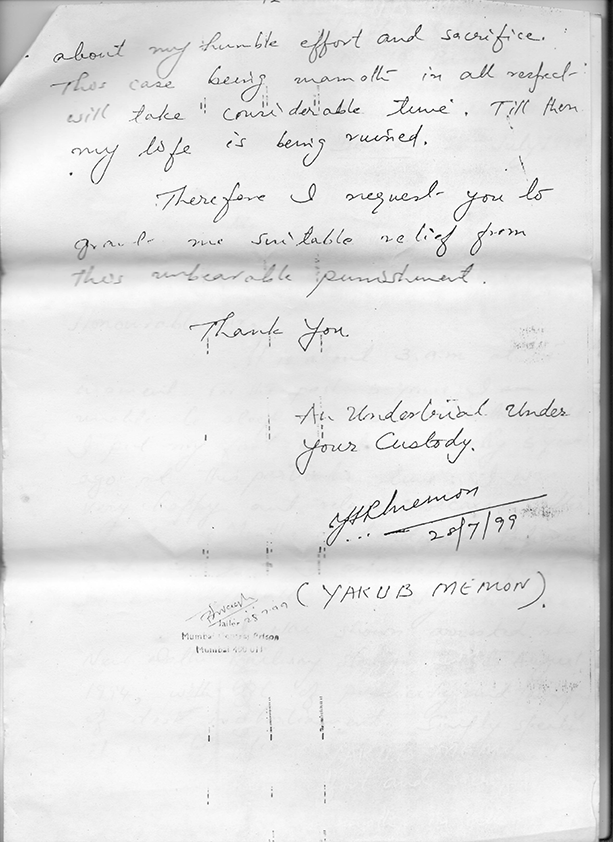 about my humble effort and sacrifice.
This case being mamoth in all respect
will take considerable time. Till then
my life is being ruined.
Therefore I request you to
grant me suitable relief from
this unbearable punishment.
Thank You.
An Undertrial Under
Your Custody.
28/7/99
(YAKUB MEMON).
Jailer
Mumbai Central Prison
Mumbai 400 011